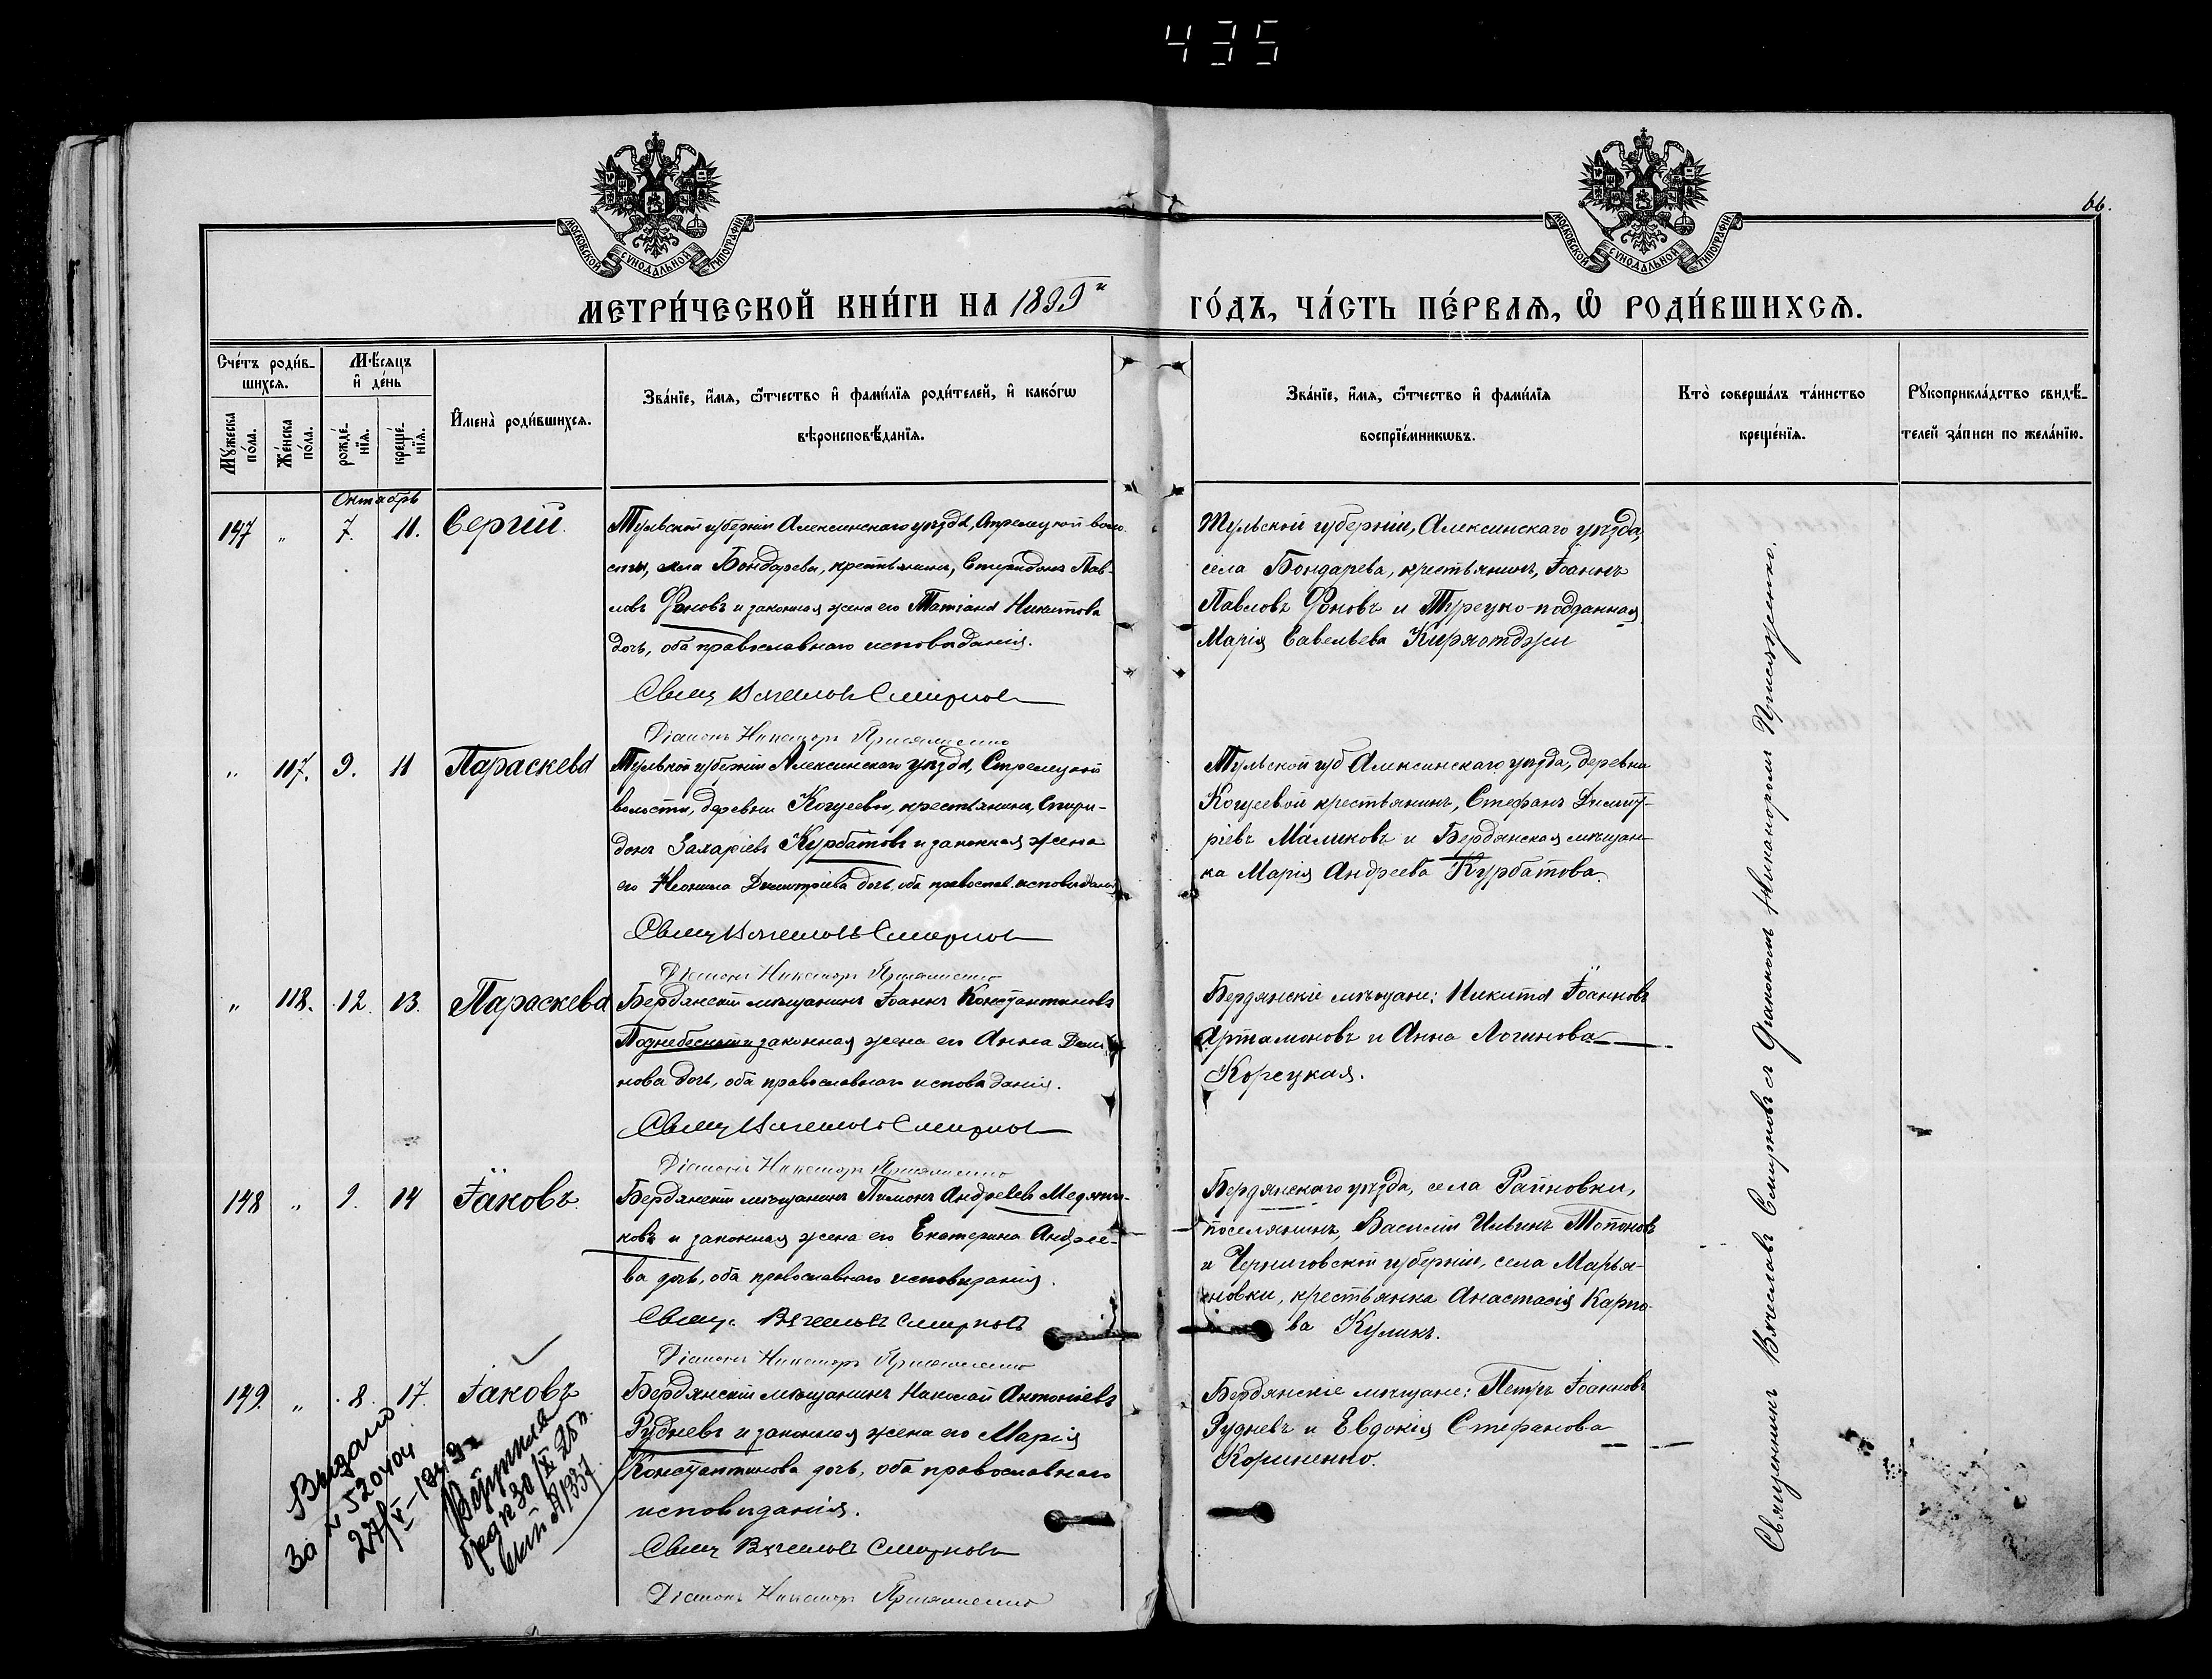 435
66.
МОСКОВСКОЙ СѴНОДАЛЬНОЙ ТИПОГРАФІИ
МОСКОВСКОЙ СѴНОДАЛЬНОЙ ТИПОГРАФІИ
МЕТРИ́ЧЕСКОЙ КНИ́ГИ НА 1899й ГО́ДЪ, ЧА́СТЬ ПЕ́РВАѦ, Ѡ҆ РОДИ́ВШИХСѦ.
Сче́тъ роди́в-
шихсѧ.
Мꙋжеска по́ла.
Же́нска по́ла.
Мѣ́сѧцъ
и҆ де́нь
рожде́-
нїѧ.
креще́-
нїѧ.
И҆мена̀ роди́вшихсѧ.
Зва́нїе, и҆́мѧ, ѻ҆́тчество и҆ фами́лїѧ роди́телей, и҆ како́гѡ
вѣроисповѣ́данїѧ.
Зва́нїе, и҆́мѧ, ѻ҆́тчество и҆ фами́лїѧ
воспрїе́мникѡвъ.
Кто̀ соверша́лъ та́инство
креще́нїѧ.
Рꙋкоприкла́дство свидѣ́-
телей за́писи по жела́нїю.
Октябрь
147 " 7. 11. Сергій.
Тульской губерніи Алексинскаго уѣзда, Стрелецкой воло-
сти, села Бондарева, крестьянинъ, Спиридонъ Пав-
ловъ Фоновъ и законная жена его Татіана Никитова
дочь, оба православнаго исповѣданія.
Свящ Вячеславъ Смирновъ
Діаконъ Никаноръ Присяженко
Тульской губерніи, Алексинскаго уѣзда,
села Бондарева, крестьянинъ, Іоаннъ
Павловъ Фоновъ и Турецко-подданная
Марія Савельева
" 117. 9. 11 Параскева
Тульской губерніи Алексинскаго уѣзда, Стрелецкой
волости, деревни крестьянинъ, Спири-
донъ Захаріевъ Курбатовъ и законная жена
его Неонила Димитріева дочь, оба православ. исповѣданія
Свящ Вячеславъ Смирновъ
Діаконъ Никаноръ Присяженко
Тульской губ Алексинскаго уѣзда, деревни
крестьянинъ, Стефанъ Димит-
ріевъ Маликовъ и Бердянская мѣщан-
ка Марія Андреева Курбатова.
" 118. 12. 13. Параскева
Бердянскій мѣщанинъ Іоаннъ Константиновъ
Поднебесный и законная жена его Анна
нова дочь, оба православнаго исповѣданія.
Свящ Вячеславъ Смирновъ
Діаконъ Никаноръ Присяженко
Бердянскіе мѣщане: Никита Іоанновъ
Артамоновъ и Анна Логинова
Корецкая.
148 " 9. 14 Іаковъ.
Бердянскій мѣщанинъ Пименъ Андреевъ
ковъ и законная жена его Екатерина Андрее-
ва дочь, оба православнаго исповѣданія.
Свящ. Вячеславъ Смирновъ
Діаконъ Никаноръ Присяженко
Бердянскаго уѣзда, села Райновки,
поселянинъ, Василій Ильинъ
и Черниговской губерніи, села Марья-
новки, крестьянка Анастасія Карпо-
ва Куликъ.
149. " 8. 17. Іаковъ
Бердянскій мѣщанинъ Николай Антоніевъ
Рудневъ и законная жена его Марія
Константинова дочь, оба православнаго
исповѣданія.
Свящ Вячеславъ Смирновъ
Діаконъ Никаноръ Присяженко
Бердянскіе мѣщане: Петръ Іоанновъ
Рудневъ и Евдокія Стефанова
Корниенко.
Выдано
За
Священникъ Вячеславъ Смирновъ съ діакономъ Никаноромъ Присяженко.